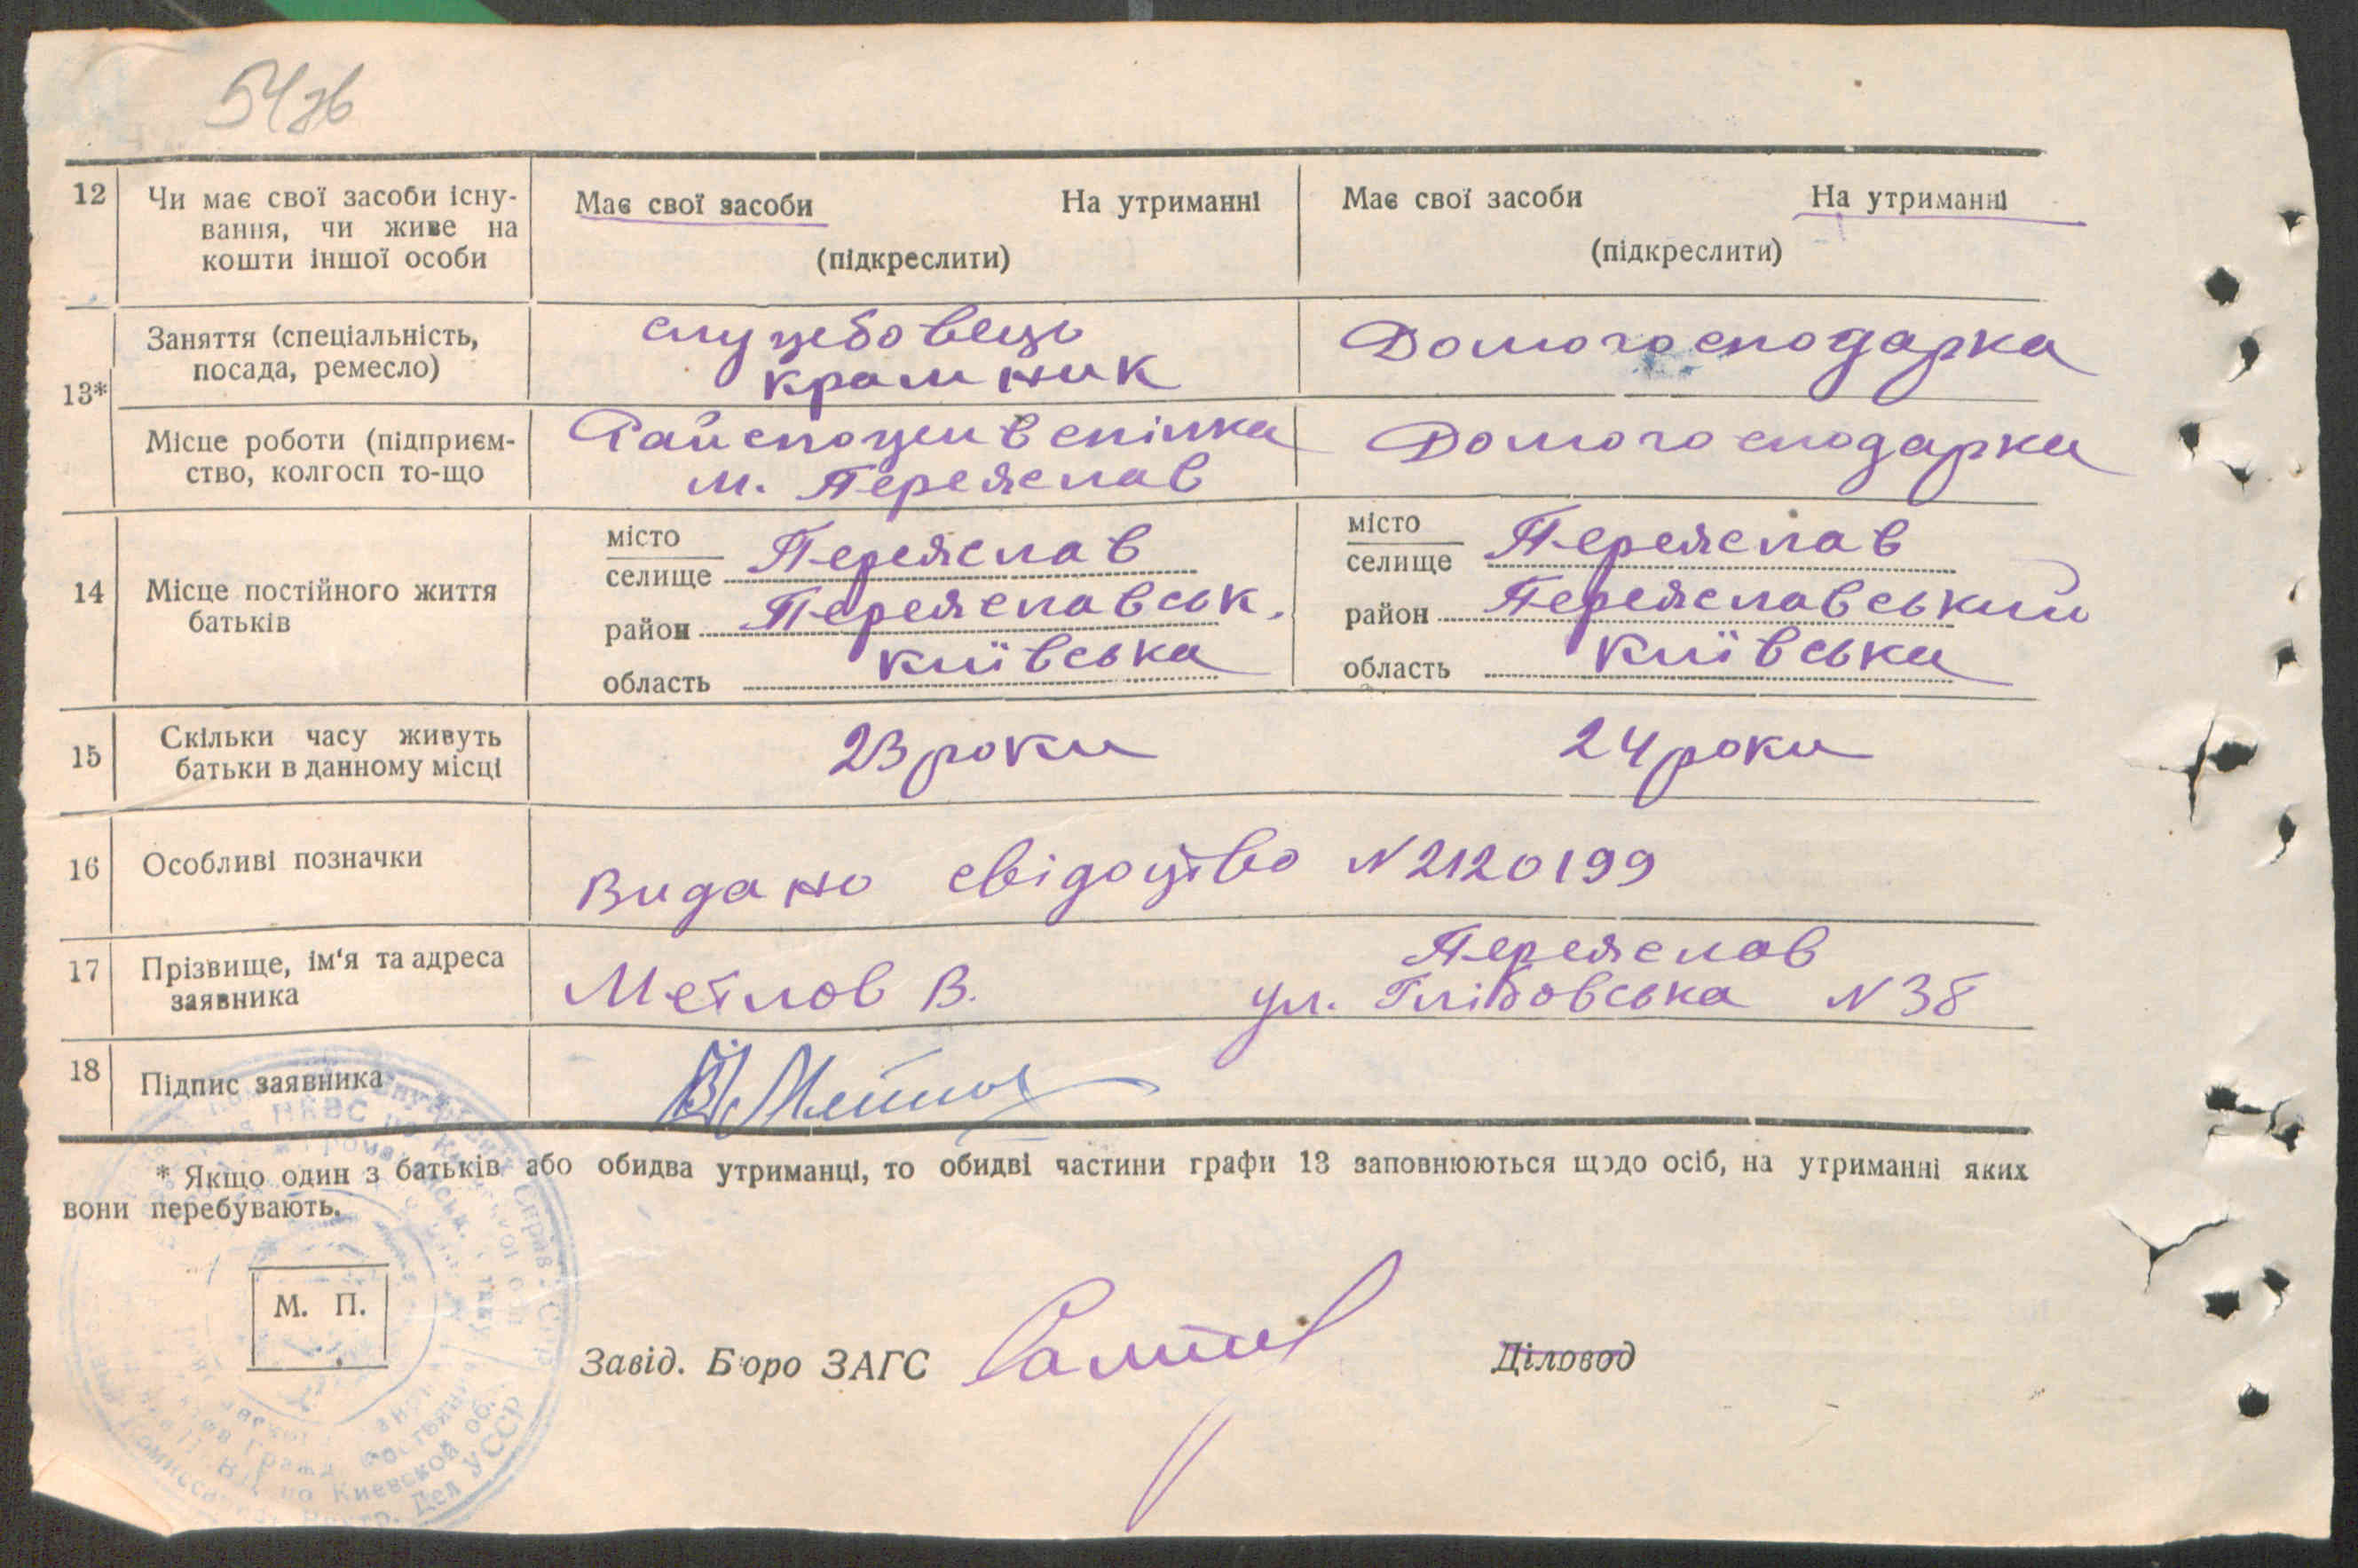 54зв
12 Чи має свої засоби існу-
вання, чи живе на
кошти іншої особи
Має свої засоби На утриманні
(підкреслити)
Має свої засоби На утриманні
(підкреслити)
13*
Заняття (спеціальність,
посада, ремесло)
службовець
крамник
Домогосподарка
Місце роботи (підприєм-
ство, колгосп то-що
Райспоживспілка
м. Переяслав
Домогосподарка
14 Місце постійного життя
батьків
місто
селище Переяслав
район Переяславськ.
область Київська
місто
селище Переяслав
район Переяславський
область Київська
15 Скільки часу живуть
батьки в данному місці
23 роки 24 роки
16 Особливі позначки
Видано свідоцтво N 2120199
17 Прізвище, ім'я та адреса
заявника
Метлов В.
Переяслав
ул. Глібовська N 38
18 Підпис заявника
В Метлов
* Якщо один з батьків або обидва утриманці, то обидві частини графи 13 заповнюються щодо осіб, на утриманні яких
вони перебувають.
М. П.
Завід. Бюро ЗАГС
Діловод